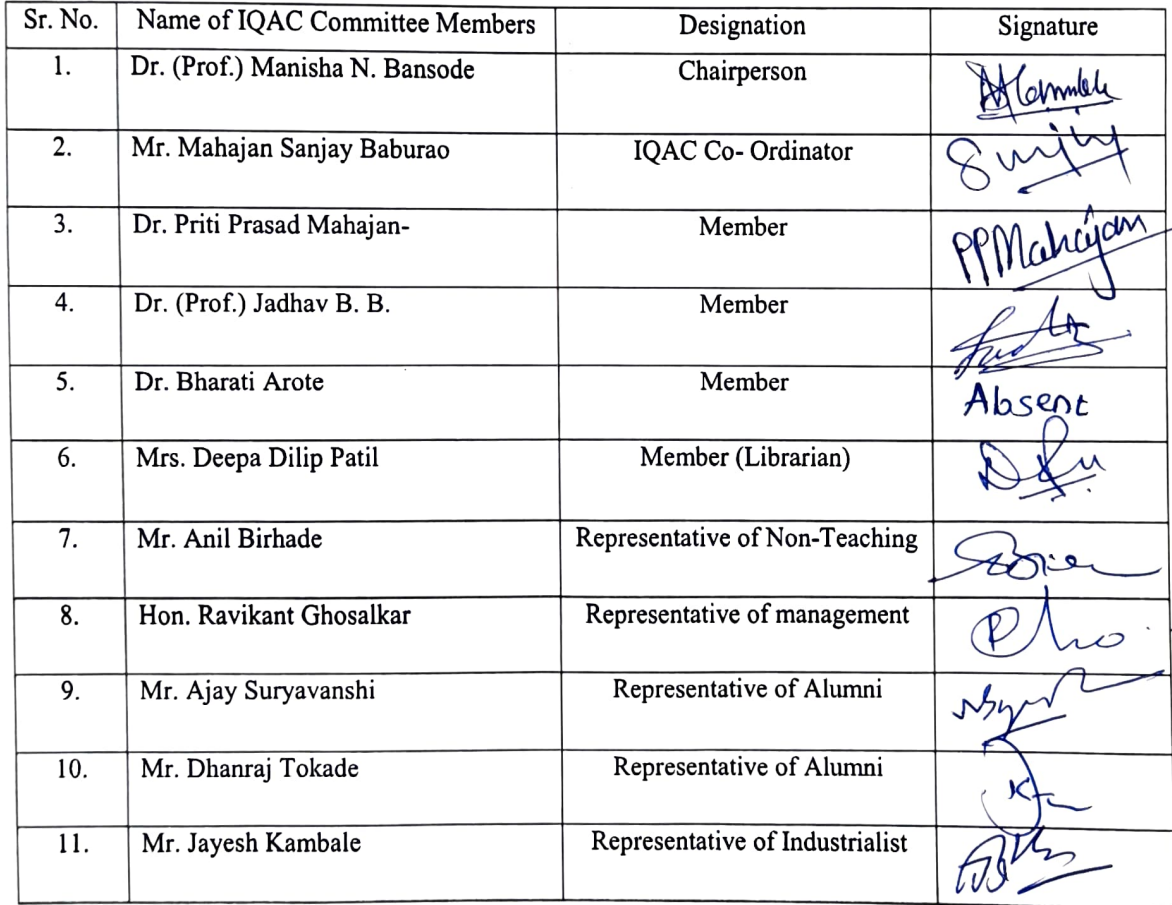 Sr. No. Name of IQAC Committee Members Designation Signature
1. Dr. (Prof.) Manisha N. Bansode Chairperson
2. Mr. Mahajan Sanjay Baburao IQAC Co- Ordinator Sanjay
3. Dr. Priti Prasad Mahajan- Member PPMahajan
4. Dr. (Prof.) Jadhav B. B. Member
5. Dr. Bharati Arote Member Absent
6. Mrs. Deepa Dilip Patil Member (Librarian)
7. Mr. Anil Birhade Representative of Non-Teaching
8. Hon. Ravikant Ghosalkar Representative of management
9. Mr. Ajay Suryavanshi Representative of Alumni
10. Mr. Dhanraj Tokade Representative of Alumni
11. Mr. Jayesh Kambale Representative of Industrialist